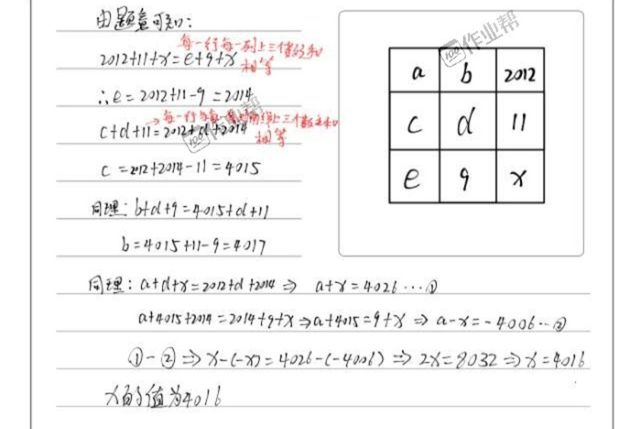 由题意可知:
每一行每一列上三个数的和
相等
2012+11+x=e+9+x
∴e=2012+11-9=2014
c+d+11=2012+d+2014
相等
c=2012+2014-11=4015
同理:b+d+9=4015+d+11
b=4015+11-9=4017
同理:a+d+x=2012+d+2014⇒ a+x=4026…①
a+4015+2014=2014+9+x⇒a+4015=9+x⇒a-x=-4006…②
①-②⇒x-(-x)=4026-(-4006)⇒2x=8032⇒x=4016
x的值为4016
作业帮
a b 2012
c d 11
e 9 x
作业帮